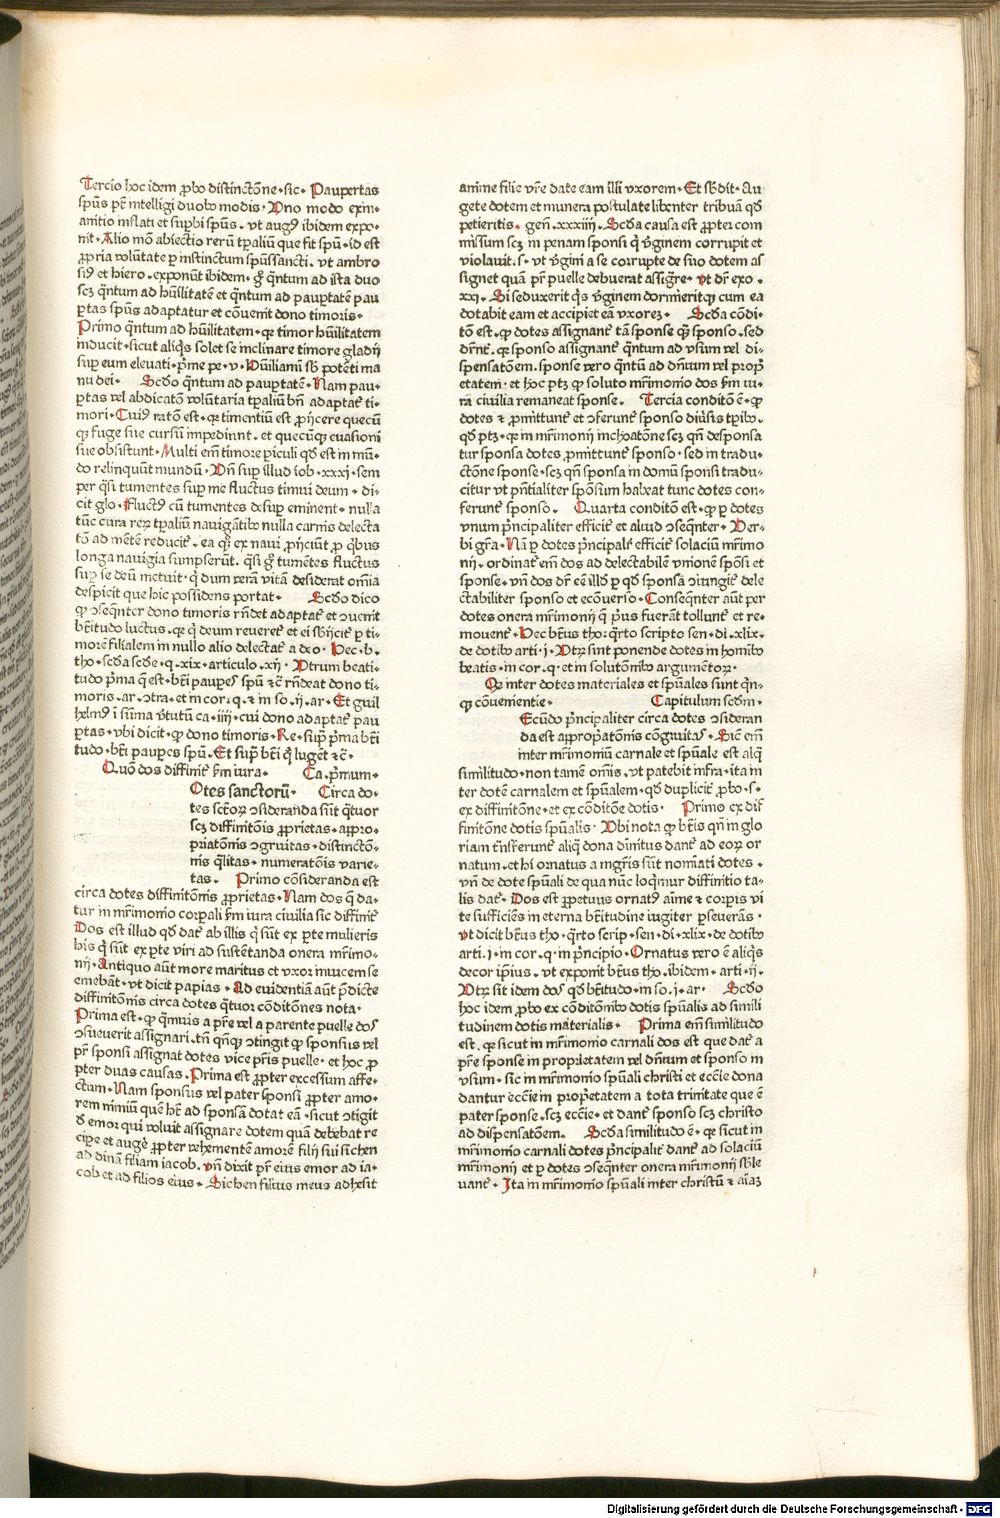 Tercio hoc idem ꝓbo distinctõne · sic · Paupertas
spũs pr̃t intelligi duobꝰ modis · Vno modo exin-
anitio inflati et supbi spũs · vt augꝰ ibidem expo-
nit · Alio mõ abiectio rerũ tp̃aliũ que fit spũ · id est
ꝓpria volũtate p instinctum spũssancti · vt ambro
siꝰ et hiero · exponũt ibidem · g̊ q̃ntum ad ista duo
scꝫ q̃ntum ad hũilitatẽ et q̃ntum ad pauptatẽ pau
ꝑtas spũs adaptatur et cõuenit dono timoris ·
Primo q̃ntum ad hũilitatem · qꝛ timor hũilitatem
inducit · sicut aliq̃s solet se inclinare timore gladij
sup eum eleuati · p̃me pe · v · Hũiliamĩ sb̃ potẽti ma
nu dei · Scd̃o q̃ntum ad pauptatẽ · Nam pau-
ꝑtas vel abdicatõ volũtaria tp̃aliũ bñ adaptat̃ ti-
mori · Cuiꝰ ratõ est · qꝛ timentiũ est ꝓijcere quecũ
qꝫ fuge sue cursũ impediunt · et quecũqꝫ euasioni
sue obsistunt · Multi em̃ timore piculi qd̃ est in mũ-
do relinquũt mundũ · Vñ sup illud iob · xxxi · sem
per q̃si tumentes sup me fluctus timui deum · di-
cit glo · Fluctꝰ cũ tumentes desup eminent · nulla
tũc cura reꝝ tp̃aliũ nauigãtibꝰ nulla carnis delecta
tõ ad mẽtẽ reducit̃ · ea qꝫ ex naui ꝓijciũt ꝓ q̃bus
longa nauigia sumpserũt · q̃si g̊ tumẽtes fluctus
sup se deũ metuit · q̃ dum verã vitã desiderat om̃ia
despicit que hic possidens portat · Scd̃o dico
qꝫ ɔseq̃nter dono timoris rñdet adaptat̃ et ɔuenit
bt̃itudo luctus · qꝛ q̃ deum reueret̃ et ei sb̃ijcit̃ p ti-
morẽ filialem in nullo alio delectat̃ a deo · Hec · b ·
tho · scd̃a scd̃e · q · xix · articulo · xij · Vtrum beati-
tudo p̃ma q̃ est · bt̃i paupes spũ ⁊c̃ rñdeat dono ti-
moris · ar · ɔtra · et in cor · q · ⁊ in so · ij · ar · Et guil
helmꝰ ĩ sũma v̓tutũ ca · iiij · cui dono adaptat̃ pau
ꝑtas · vbi dicit · qꝫ dono timoris · Re · sup̃ p̃ma bt̃i
tudo · bt̃i paupes spũ · Et sup̃ bt̃i q̃ lugẽt ⁊c̃ ·
Quõ dos diffinit̃ fm̃ iura · Ca · p̃mum ·
Otes sanctorũ · Circa do-
tes sctõꝝ ɔsideranda sũt q̃tuor
scꝫ diffinitõis ꝓprietas · appro-
priatõnis ɔgruitas · distinctõ-
nis q̃litas · numeratõis varie-
tas · Primo cõsideranda est
circa dotes diffinitõnis ꝓprietas · Nam dos q̃ da-
tur in mr̃imonio corpali fm̃ iura ciuilia sic diffinit̃
Dos est illud qd̃ dat̃ ab illis q̃ sũt ex pte mulieris
his q̃ sũt ex pte viri ad sustẽtanda onera mr̃imo-
nij · Antiquo aũt more maritus et vxor inuicem se
emebãt · vt dicit papias · Ad euidentiã aũt p̃dicte
diffinitõnis circa dotes q̃tuor cõditõnes nota ·
Prima est · qꝫ q̃muis a pr̃e vel a parente puelle dos
ɔsueuerit assignari · tñ qñqꝫ ɔtingit qꝫ sponsus vel
pr̃ sponsi assignat dotes vice pr̃is puelle · et hoc ꝓ
pter duas causas · Prima est ꝓpter excessum affe-
ctum · Nam sponsus vel pater sponsi ꝓpter amo-
rem nimiũ quẽ hẽt ad sponsã dotat eã · sicut ɔtigit
d̃ emor qui voluit assignare dotem quã debebat re
cipe et augẽ ꝓpter vehementẽ amorẽ filij sui sichen
ad dinã filiam iacob · vñ dixit pr̃ eius emor ad ia-
cob et ad filios eius · Sichen filius meus adhesit
anime filie vr̃e date eam illi vxorem · Et sb̃dit · Au
gete dotem et munera postulate libenter tribuã qd̃
petieritis · geñ · xxxiiij · Scd̃a causa est ꝓpter com
missum scꝫ in penam sponsi q̃ v̓ginem corrupit et
violauit · s · vt v̓gini a se corrupte de suo dotem as
signet quã pr̃ puelle debuerat assig̃re · vt dr̃ exo ·
xxi · Si seduxerit q̃s v̓ginem dormieritqꝫ cum ea
dotabit eam et accipiet eã vxoreꝫ · Scd̃a cõdi-
tõ est · qꝫ dotes assignant̃ tã sponse qꝫ sponso · sed
dr̃nt̃ · qꝛ sponso assignant̃ q̃ntum ad vsum vel di-
spensatõem · sponse vero q̃ntũ ad dñium vel prop̃
etatem · et hoc ptꝫ qꝛ soluto mr̃imonio dos fm̃ iu-
ra ciuilia remaneat sponse · Tercia conditõ ẽ · qꝫ
dotes ⁊ ꝓmittunt̃ et ɔferunt̃ sponso diũsis tp̃ibꝰ ·
qd̃ ptꝫ · qꝛ in mr̃imonij inchoatõne scꝫ qñ desponsa
tur sponsa dotes ꝓmittunt̃ sponso · sed in tradu-
ctõne sponse · scꝫ qñ sponsa in domũ sponsi tradu-
citur vt p̃ntialiter spõsum habeat tunc dotes con-
ferunt̃ sponso · Quarta conditõ est · qꝫ p dotes
vnum p̃ncipaliter efficit̃ et aliud ɔseq̃nter · Ver-
bi gr̃a · Nã p dotes p̃ncipalr̃ efficit̃ solaciũ mr̃imo
nij · ordinat̃ em̃ dos ad delectabilẽ vnionẽ spõsi et
sponse · vñ dos dr̃ eẽ illd̃ p qd̃ sponsa ɔiungit̃ dele
ctabiliter sponso et ecõuerso · Conseq̃nter aũt per
dotes onera mr̃imonij q̃ p̃us fuerãt tollunt̃ et re-
mouent̃ · Hec bt̃us tho · q̃rto scripto sen · di · xlix ·
de dotibꝰ arti · j · Vtꝝ sint ponende dotes in homibꝰ
beatis · in cor · q · et in solutõnibꝰ argumẽtoꝝ ·
Qꝫ inter dotes materiales et spũales sunt q̃n-
qꝫ cõuenientie · Capitulum scd̃m ·
Ecũdo p̃ncipaliter circa dotes ɔsideran
da est appropatõnis cõgruitas · Sic̃ em̃
inter mr̃imoniũ carnale et spũale est alq̃
similitudo · non tamẽ om̃is · vt patebit infra · ita in
ter dotẽ carnalem et spũalem · qd̃ duplicit̃ ꝓbo · s ·
ex diffinitõne · et ex cõditõe dotis · Primo ex dif
finitõne dotis spũalis · Vbi nota qꝫ bt̃is qñ in glo
riam tñsferunt̃ aliq̃ dona diuĩtus dant̃ ad eoꝝ or
natum · et hi ornatus a mgr̃is sũt nomiati dotes ·
vñ de dote spũali de qua nũc loq̃mur diffinitio ta-
lis dat̃ · Dos est ꝓpetuus ornatꝰ aĩme ⁊ corpis vi
te sufficiẽs in eterna bt̃itudine iugiter pseuerãs ·
vt dicit bt̃us tho · q̃rto scrip · sen · di · xlix · de dotibꝰ
arti · j · in cor · q · in p̃ncipio · Ornatus vero ẽ aliq̃s
decor ipius · vt exponit bt̃us tho · ibidem · arti · ij ·
Vtꝝ sit idem dos qd̃ bt̃itudo · in so · j · ar · Scd̃o
hoc idem ꝓbo ex cõditõnibꝰ dotis spũalis ad simili
tudinem dotis materialis · Prima em̃ similitudo
est · qꝫ sicut in mr̃imonio carnali dos est que dat̃ a
pr̃e sponse in proprietatem vel dñium et sponso in
vsum · sic in mr̃imonio spũali christi et ecc̃ie dona
dantur ecc̃ie in prop̃etatem a tota trinitate que ẽ
pater sponse · scꝫ ecc̃ie · et dant̃ sponso scꝫ christo
ad dispensatõem · Scd̃a similitudo ẽ · qꝛ sicut in
mr̃imonio carnali dotes p̃ncipalit̃ dant̃ ad solaciũ
mr̃imonij et p dotes ɔseq̃nter onera mr̃imonij sb̃le
uant̃ · Ita in mr̃imonio spũali inter christũ ⁊ aĩaꝫ
Digitalisierung gefördert durch die Deutsche Forschungsgemeinschaft - DFG